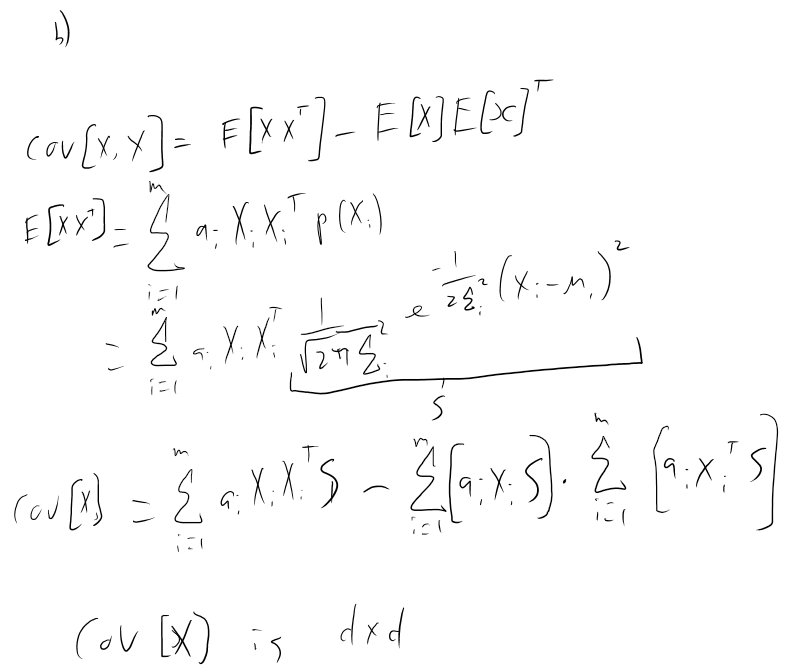 b)
Cov[X, X] = E[XX^T] - E[X]E[x]^T
E[XX^T] = \sum_{i=1}^{m} a_i X_i X_i^T p(X_i)
= \sum_{i=1}^{m} a_i X_i X_i^T \frac{1}{\sqrt{2\pi\Sigma_i^2}} e^{\frac{-1}{2\Sigma_i^2}(X_i - μ_i)^2}
S
Cov[X] = \sum_{i=1}^{m} a_i X_i X_i^T S - \sum_{i=1}^{m} [a_i X_i S] · \sum_{i=1}^{m} [a_i X_i^T S]
Cov[X] is d×d